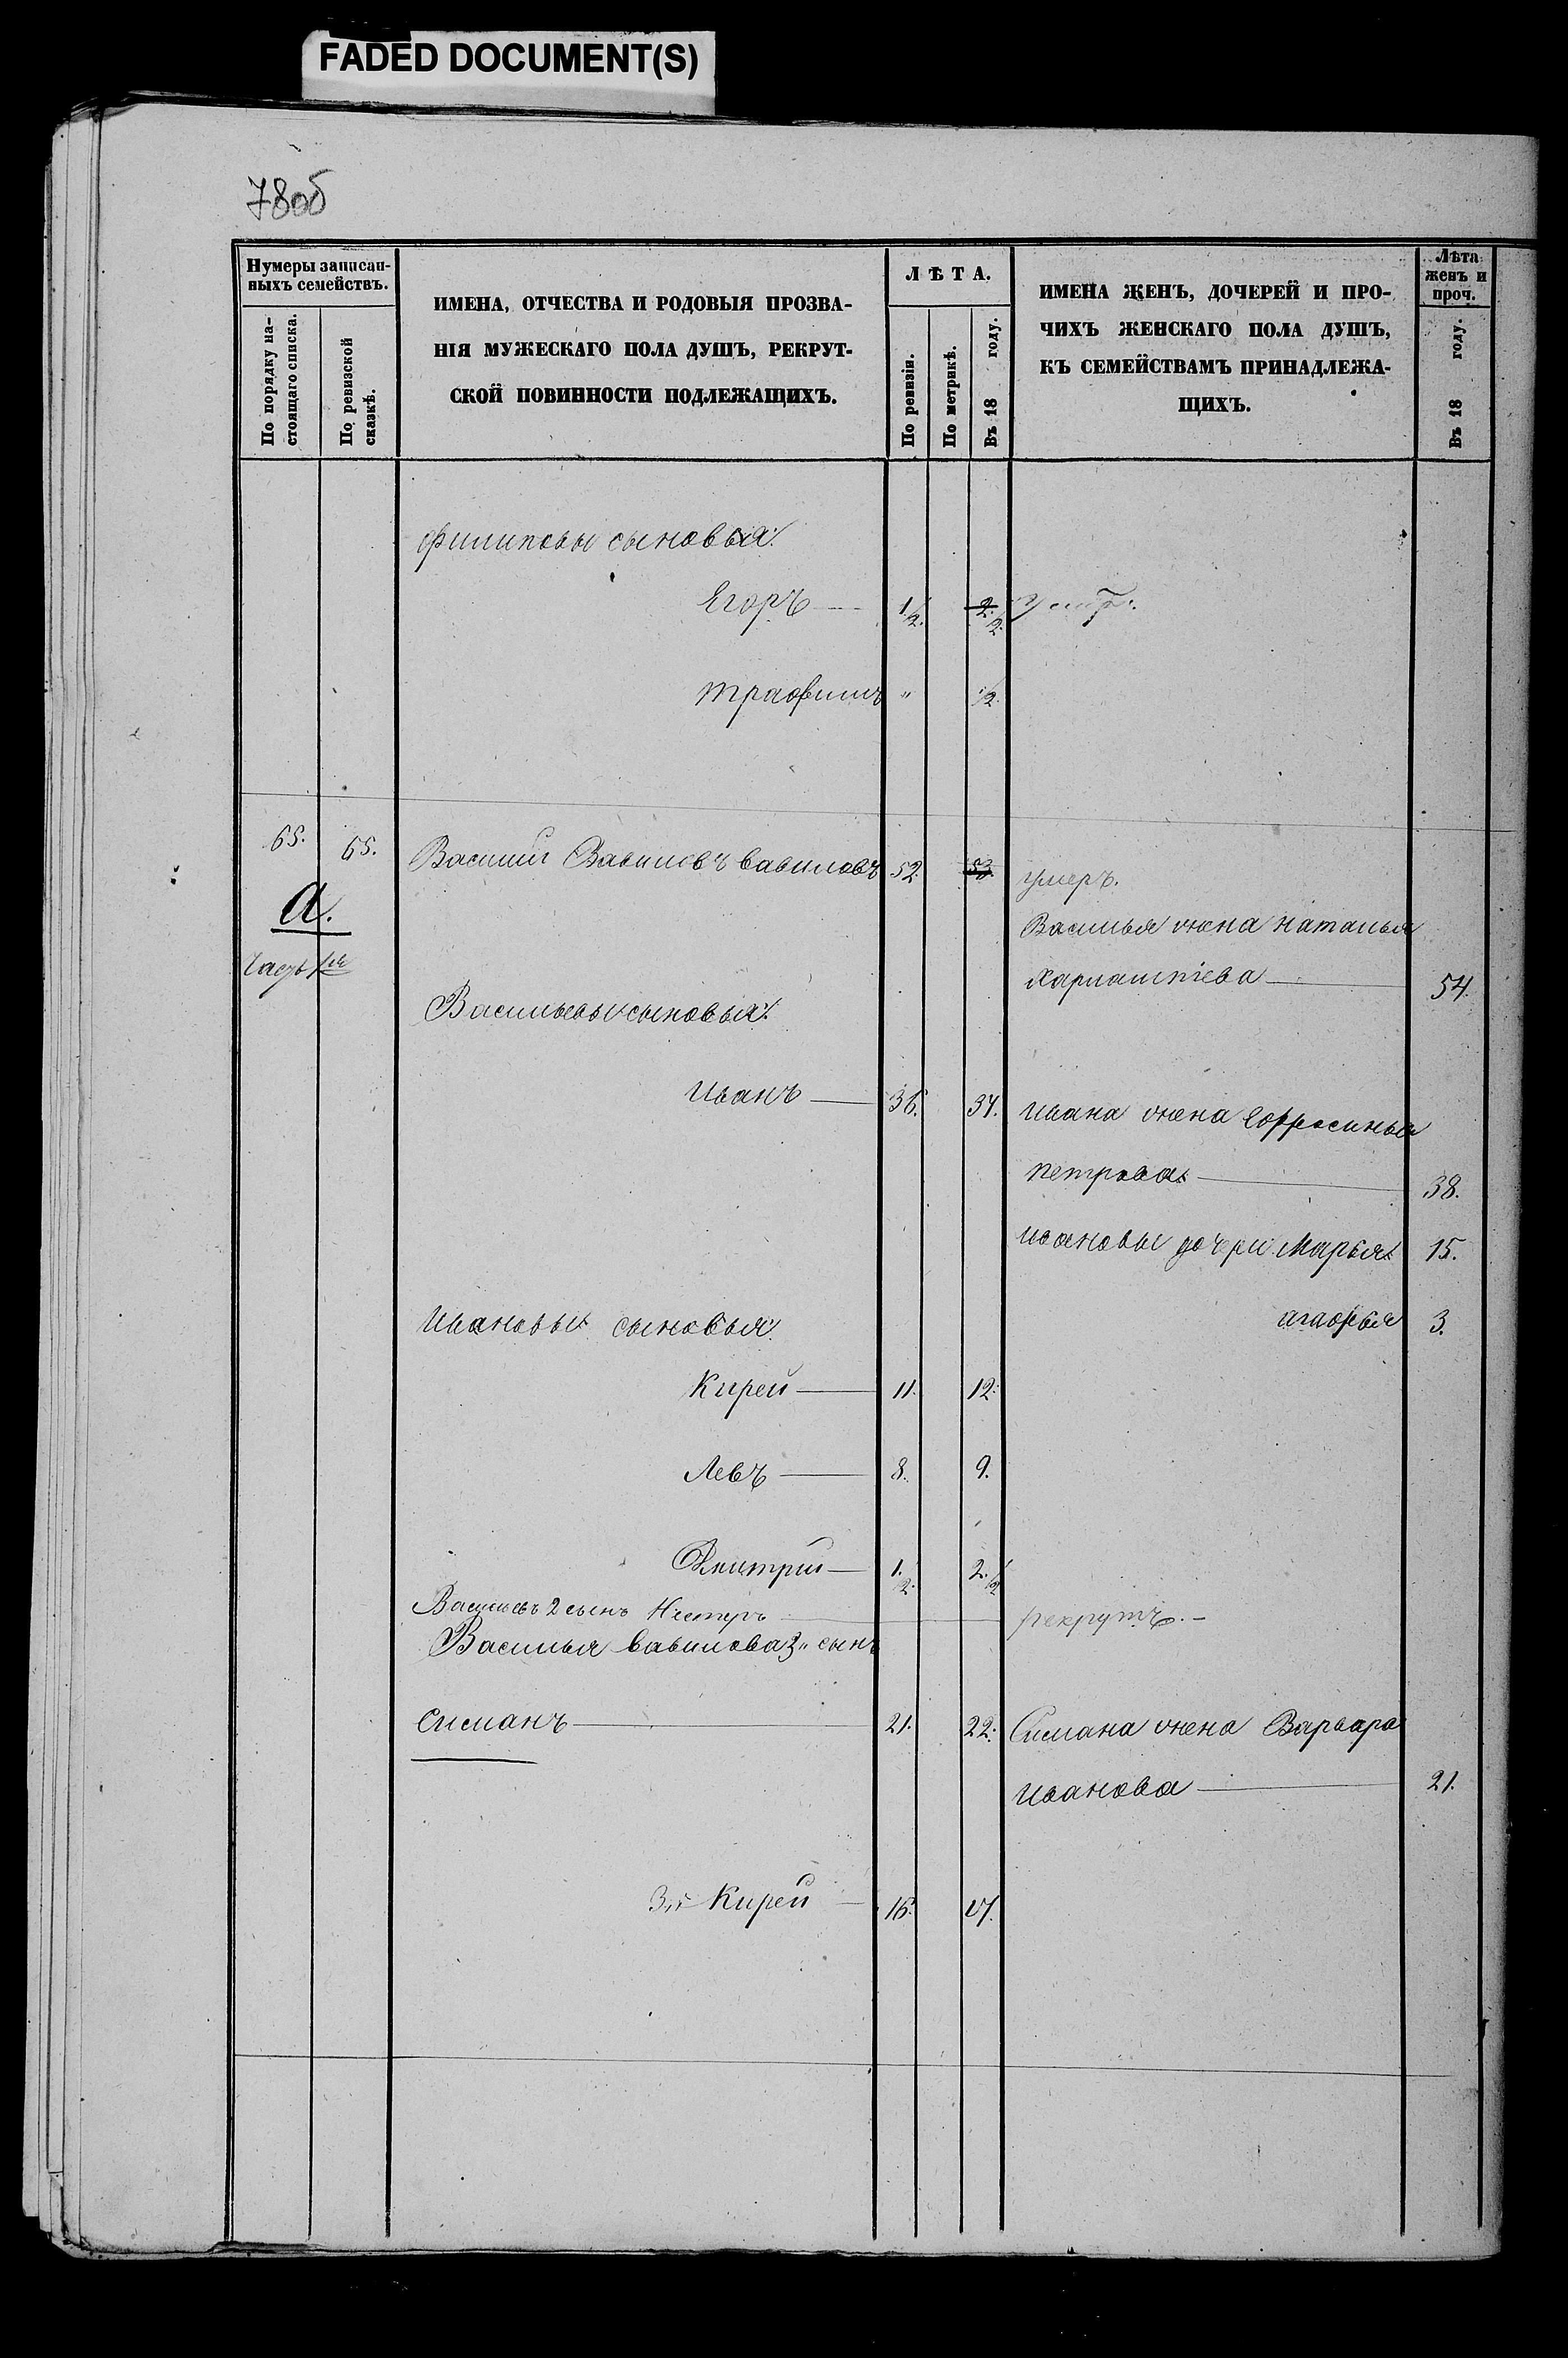 FADED DOCUMENT(S)
78об
Нумеры записан-
ныхъ семействъ.
По порядку на-
стоящаго списка.
По ревизской
сказкѣ.
ИМЕНА, ОТЧЕСТВА И РОДОВЫЯ ПРОЗВА-
НІЯ МУЖЕСКАГО ПОЛА ДУШЪ, РЕКРУТ-
СКОЙ ПОВИННОСТИ ПОДЛЕЖАЩИХЪ.
ЛѢТА.
По ревизіи.
По метрикѣ.
Въ 18 году.
ИМЕНА ЖЕНЪ, ДОЧЕРЕЙ И ПРО-
ЧИХЪ ЖЕНСКАГО ПОЛА ДУШЪ,
КЪ СЕМЕЙСТВАМЪ ПРИНАДЛЕЖА-
ЩИХЪ.
Лѣта
женъ и
проч.
Въ 18 году.
Филиповы сыновья:
Егоръ 1/2. 2. 1/2.
Трафимъ " 1/2.
65. 65. Василий Вавиловъ Вавиловъ 52. 53. умеръ.
А.
Часть 1я
Василья жена Наталья
Харлампіева 54.
Васильевы сыновья:
Иванъ 36. 37. Ивана жена Ефросинья
Петрова 38.
Ивановы дочри Марья 15.
Ивановы сыновья: Агафья 3.
Кирей 11. 12.
Левъ 8. 9.
Дмитрий 1. 1/2. 2. 1/2
Васильевъ 2 сынъ Нестеръ рекрутъ.
Василья Вавилова 3й сынъ
Сисианъ 21. 22. Сисиана жена Варвара
Иванова 21.
3й Кирей 16. 17.